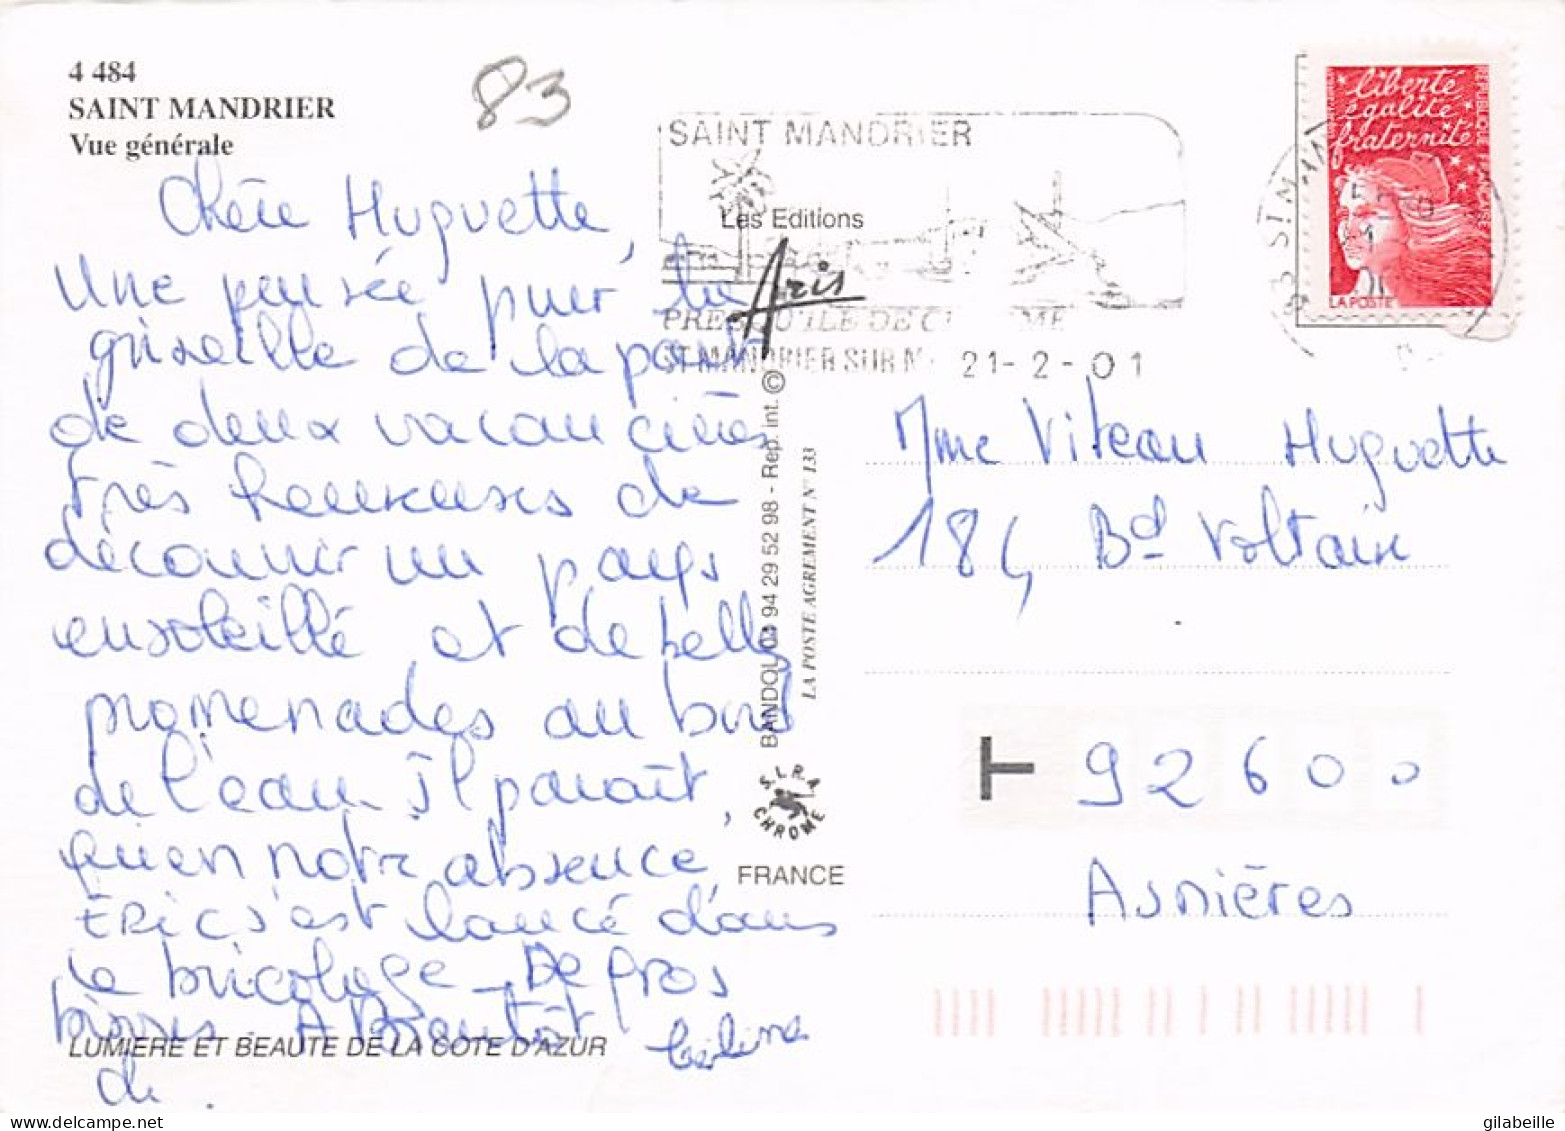 4 484
SAINT MANDRIER
Vue générale
83
Chère Huguette,
Une pensée pour la
grisaille de la part
de deux vacancières
très heureuses de
découvrir un pays
ensoleillé et de belles
promenades au bord
de l'eau. Il parait,
qu'en notre absence
ERIC s'est lancé dans
le bricolage - De gros
bisous. A Bientôt
Céline
LUMIERE ET BEAUTE DE LA COTE D'AZUR
SAINT MANDRIER
PRESQU'ILE DE C ME
ST MANDRIER SUR M 21-2-01
Les Editions
Aris
BANDOL 04 94 29 52 98 - Rep. int. ©
LA POSTE AGREMENT N° 133
S.L.R.A
CHROME
FRANCE
liberté
égalité
fraternité
REPUBLIQUE FRANÇAISE
LA POSTE
83 ST M
Mme Viteau Huguette
184, Bd Voltaire
92600
Asnières
gilabeille